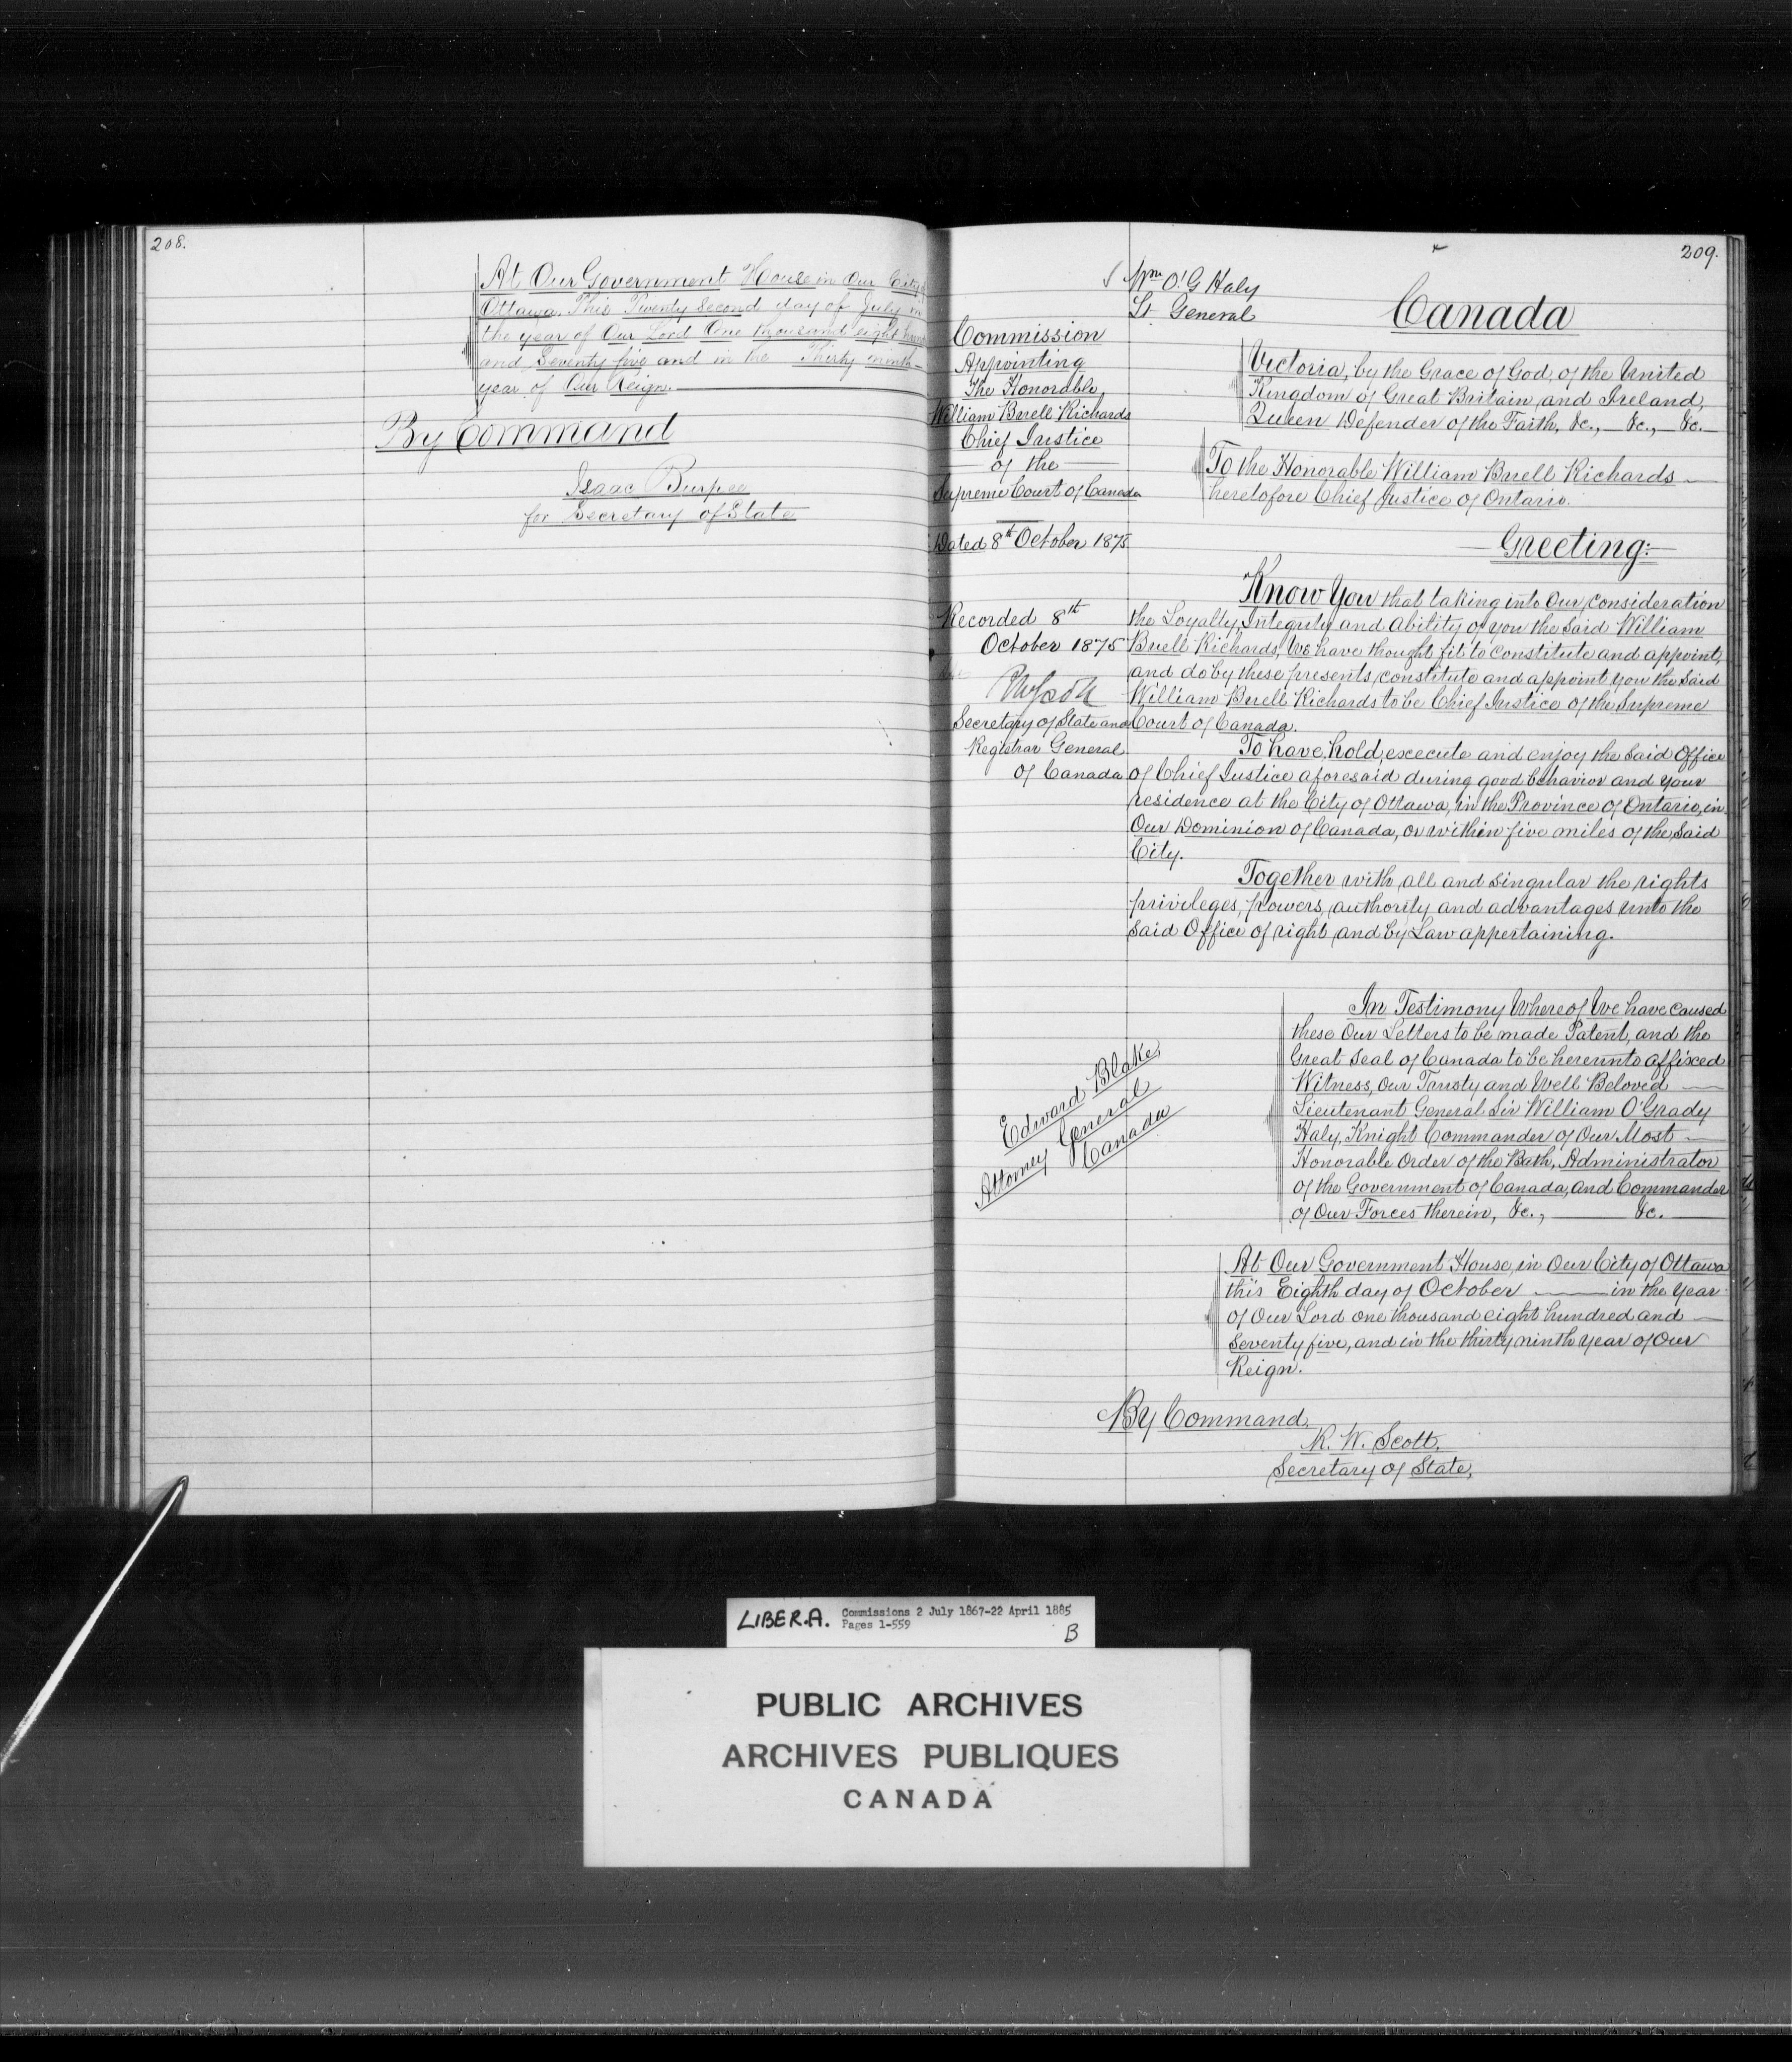 208.
At Our Government House in Our City of
Ottawa. This Twenty Second day of July in
the year of Our Lord One thousand eight
and Seventy five and in the Thirty ninth
year of Our Reign.
By Command
Isaac Burpee
for Secretary of State
209.
Wm O'G Haly
Lt. General
Commission
Appointing
The Honorable
William Buell Richards
Chief Justice
of the
Supreme Court of Canada
Dated 8th October 1875.
Recorded 8th
October 1875
Secretary of State and
Registrar General
of Canada
Canada
Victoria, by the Grace of God, of the United
Kingdom of Great Britain and Ireland,
Queen Defender of the Faith, &c., &c., &c.
To the Honorable William Buell Richards
heretofore Chief Justice of Ontario.
Greeting:
Know You that taking into Our consideration
the Loyalty, Integrity and Ability of you the Said William
Buell Richards, We have thought fit to constitute and appoint,
and do by these presents, constitute and appoint you the Said
William Buell Richards to be Chief Justice of the Supreme
Court of Canada.
To have, hold, excecute and enjoy the Said Office
of Chief Justice aforesaid during good behavior and your
residence at the City of Ottawa, in the Province of Ontario, in
Our Dominion of Canada, or within five miles of the Said
City.
Together with all and singular the rights
privileges, powers, authority and advantages unto the
Said Office of right and by Law appertaining.
In Testimony Whereof We have caused
these Our Letters to be made Patent, and the
Great Seal of Canada to be hereunto affixed
Witness, Our Trusty and Well Beloved
Lieutenant General Sir William O'Grady
Haly, Knight Commander of Our Most
Honorable Order of the Bath, Administrator
of the Government of Canada, and Commander
of Our Forces therein, &c., &c.
Edward Blake,
Attorney General
Canada
At Our Government House, in Our City of Ottawa
this Eighth day of October in the Year
of Our Lord one thousand eight hundred and
Seventy five, and in the thirty ninth year of Our
Reign.
By Command
R. W. Scott,
Secretary of State,
LIBER.A. Commissions 2 July 1867-22 April 1885
Pages 1-559
B
PUBLIC ARCHIVES
ARCHIVES PUBLIQUES
CANADA